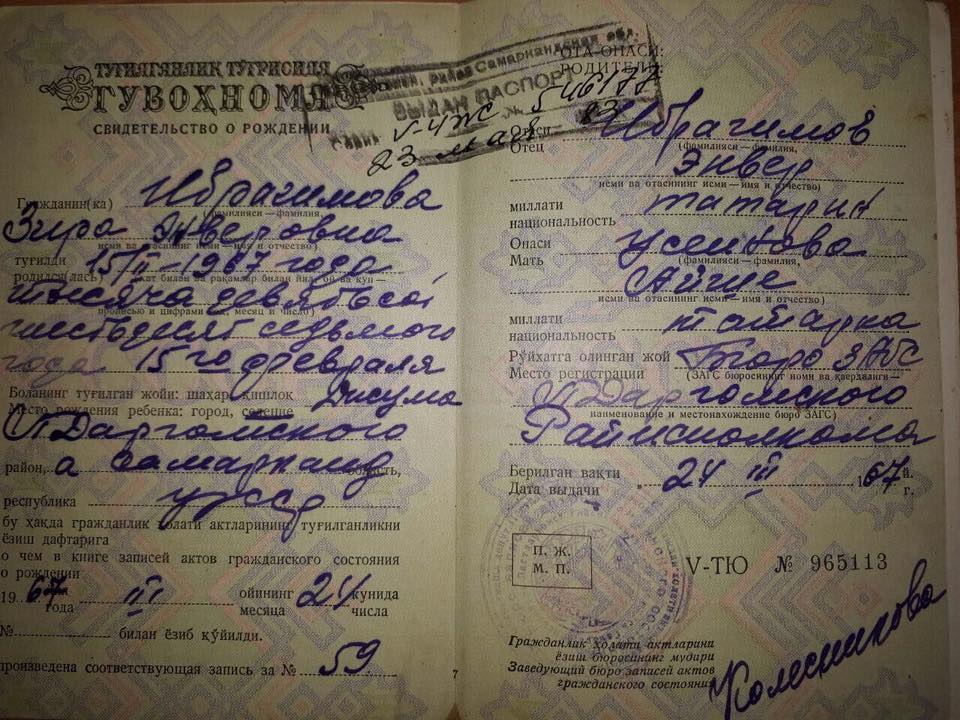 ТУҒИЛГАНЛИК ТЎҒРИСИДА
ГУВОҲНОМА
СВИДЕТЕЛЬСТВО О РОЖДЕНИИ
Гражданин(ка) Ибрагимова
(фамилияси — фамилия,
Зира Энверовна
исми ва отасининг исми — имя и отчество)
туғилди
родился(лась) 15/II-1967 года
тысяча девятьсот
прописью и цифрами год, месяц и число)
шестьдесят седьмого
года 15го февраля
Боланинг туғилган жойи: шаҳар, қишлоқ
Место рождения ребенка: город, селение Джума
П Даргомского
район, а Самарканд область,
республика УзССР
бу ҳақда гражданлик ҳолати актларининг туғилганликни
ёзиш дафтарига
о чем в книге записей актов гражданского состояния
о рождении
1967 года III ойининг месяца 24 кунида числа
№ билан ёзиб қўйилди.
произведена соответствующая запись за № 59.
7
район Самаркандская обл.
ВЫДАН ПАСПОРТ
V-ЧЖ № 546177
23 мая 83
ОТА-ОНАСИ:
РОДИТЕЛИ:
Отаси
Отец Ибрагимов
(фамилияси — фамилия,
Энвер
исми ва отасининг исми — имя и отчество)
миллати
национальность татарин
Онаси
Мать Усеинова
(фамилияси — фамилия,
Айше
исми ва отасининг исми — имя и отчество)
миллати
национальность татарка
Рўйхатга олинган жой
Место регистрации Бюро ЗАГС
(ЗАГС бюросининг номи ва қаердалиги —
П Даргомского
наименование и местонахождение бюро ЗАГС)
Райисполкома
Берилган вақти
Дата выдачи 24 III 1967 й. г.
П. Ж.
М. П.
V-ТЮ № 965113
Гражданлик ҳолати актларини
ёзиш бюросининг мудири
Заведующий бюро записей актов
гражданского состояния
Колесникова